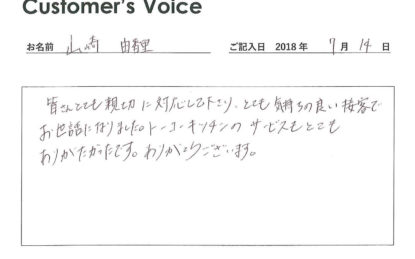 Customer's Voice
お名前 山崎 由香里 ご記入日 2018年 7月 14日
皆さんとても親切に対応して下さり、とても気持ちの良い接客で
お世話になりました。トーコーキッチンのサービスもとても
ありがたかったです。ありがとうございます。